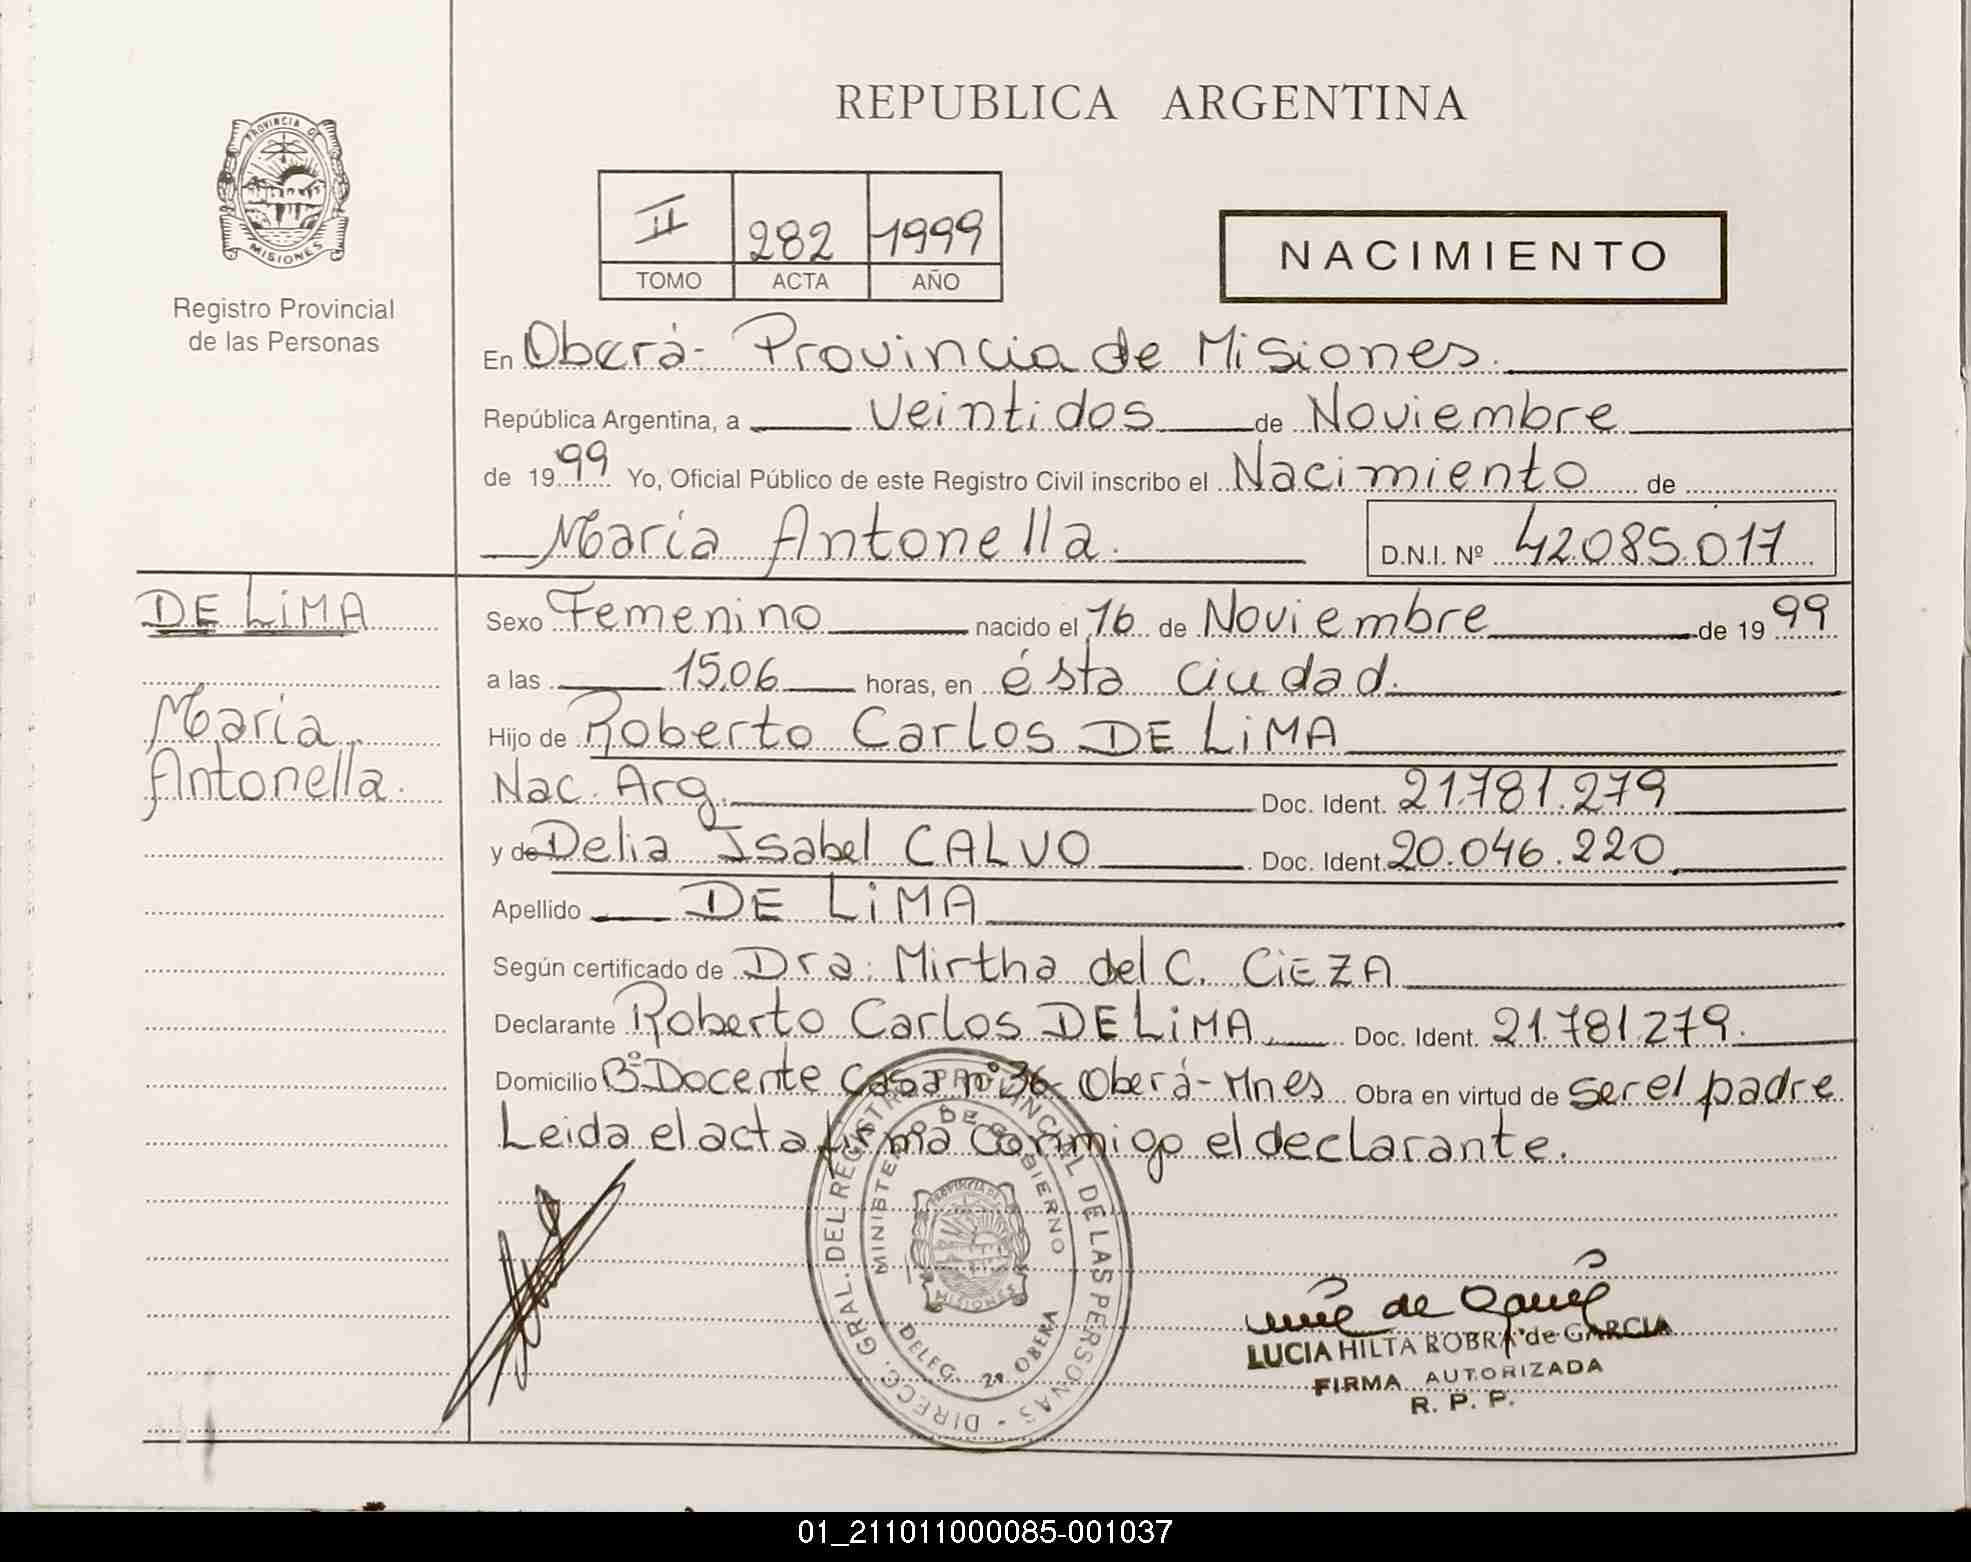 REPUBLICA ARGENTINA
PROVINCIA DE
MISIONES
Registro Provincial
de las Personas
II 282 1999
TOMO ACTA AÑO
NACIMIENTO
En Oberá - Provincia de Misiones.
República Argentina, a veintidos de Noviembre
de 1999 Yo, Oficial Público de este Registro Civil inscribo el Nacimiento de
María Antonella. D.N.I. Nº 42.085.017
DE LiMA
María
Antonella.
Sexo Femenino nacido el 16 de Noviembre de 1999
a las 15,06 horas, en ésta ciudad.
Hijo de Roberto Carlos DE LiMA
Nac. Arg. Doc. Ident. 21.781.279
y de Delia Isabel CALVO Doc. Ident. 20.046.220
Apellido DE LiMA
Según certificado de Dra: Mirtha del C. CiEZA
Declarante Roberto Carlos DE LiMA Doc. Ident. 21.781.279.
Domicilio Bº Docente Casa nº 36 - Oberá - Mnes Obra en virtud de ser el padre
Leida el acta firma conmigo el declarante.
DIRECC. GRAL. DEL REGISTRO PROVINCIAL DE LAS PERSONAS -
MINISTERIO DE GOBIERNO
PROVINCIA DE
MISIONES
DELEG. 2ª OBERA
LUCIA HILTA ROBRA de GARCIA
FIRMA AUTORIZADA
R. P. P.
01_211011000085-001037